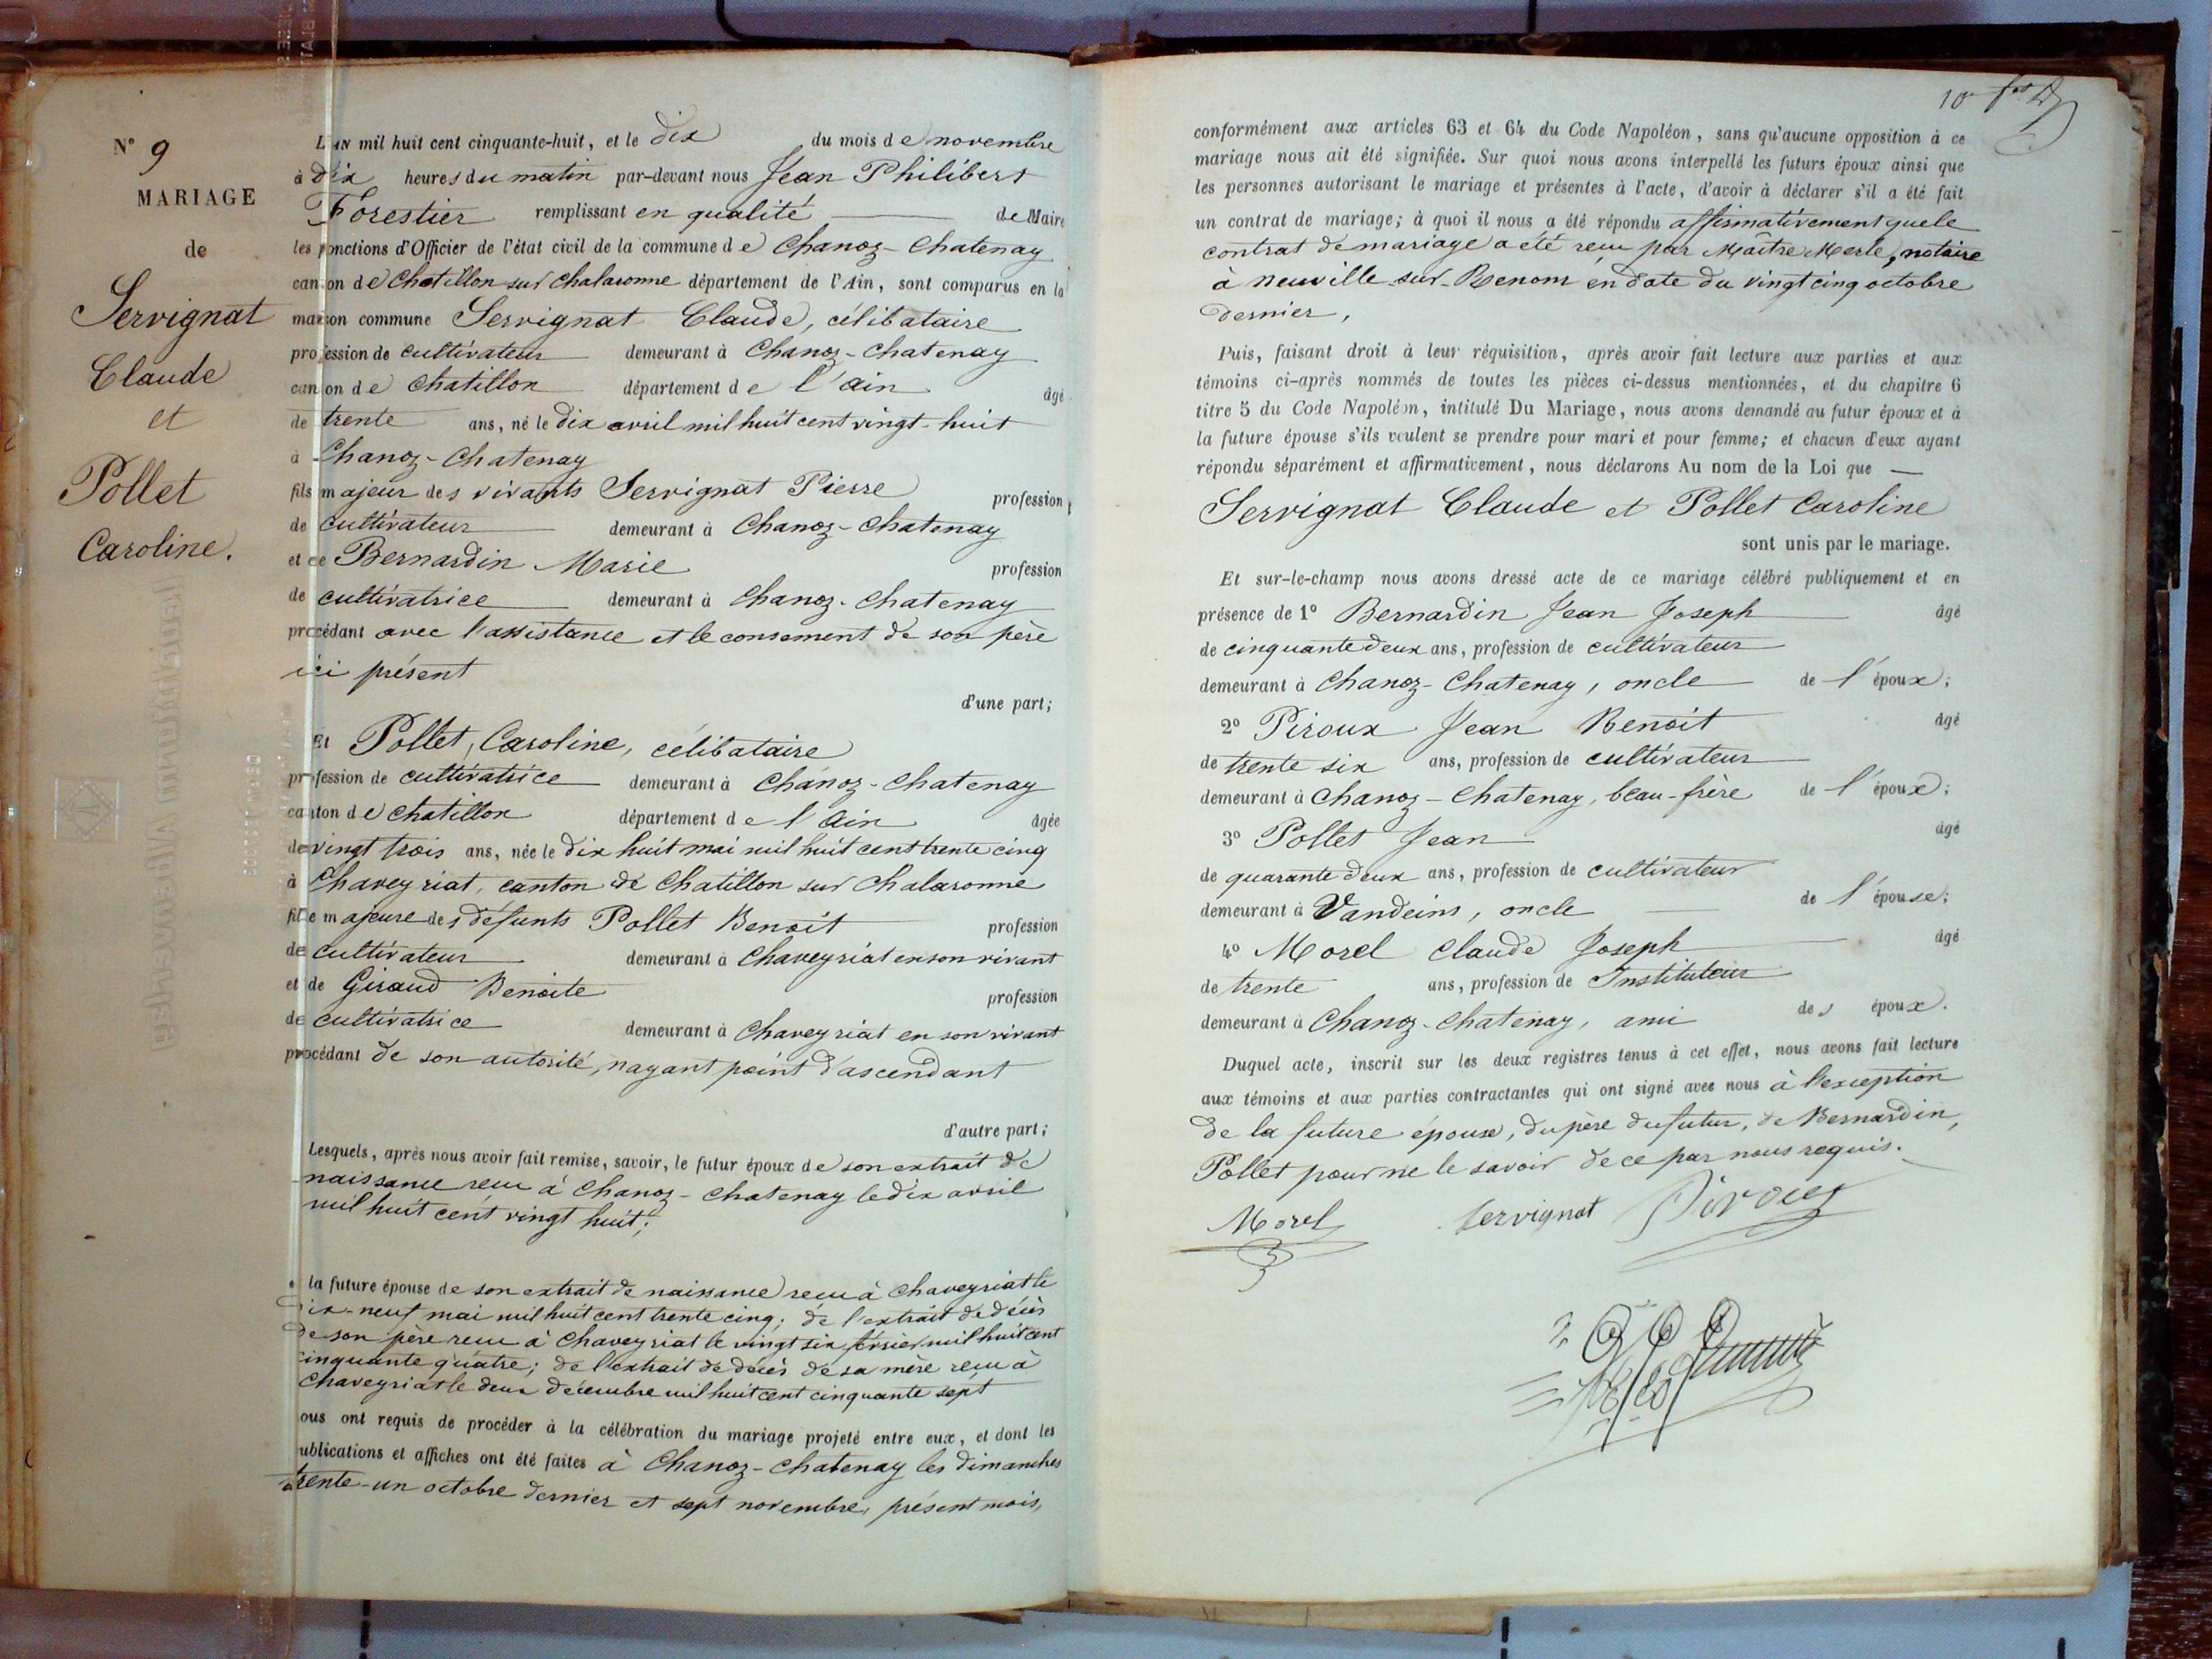 N° 9
MARIAGE
de
Servignat
Claude
et
Pollet
Caroline.
L'AN mil huit cent cinquante-huit, et le dix du mois de novembre
à dix heures du matin par-devant nous Jean Philibert
Forestier remplissant en qualité de Maire
les fonctions d'Officier de l'état civil de la commune de Chanoz-Chatenay
canton de Chatillon sur Chalaronne département de l'Ain, sont comparus en la
maison commune Servignat Claude, célibataire
profession de cultivateur demeurant à Chanoz-Chatenay
canton de Chatillon département de l'ain âgé
de trente ans, né le dix avril mil huit cent vingt-huit
à Chanoz-Chatenay
fils majeur des vivants Servignat Pierre profession
de cultivateur demeurant à Chanoz-Chatenay
et de Bernardin Marie profession
de cultivatrice demeurant à Chanoz-Chatenay
procédant avec l'assistance et le consement de son père
ici présent
d'une part;
Et Pollet, Caroline, célibataire
profession de cultivatrice demeurant à Chanoz-Chatenay
canton de Chatillon département de l'Ain âgée
de vingt trois ans, née le dix huit mai mil huit cent trente cinq
à Chaveyriat, canton de Chatillon sur Chalaronne
fille majeure des défunts Pollet Benoit profession
de cultivateur demeurant à Chaveyriat en son vivant
et de Giraud Benoite profession
de cultivatrice demeurant à Chaveyriat en son vivant
procédant de son autorité, nayant point d'ascendant
d'autre part;
Lesquels, après nous avoir fait remise, savoir, le futur époux de son extrait de
naissance reçu à Chanoz-Chatenay le dix avril
mil huit cent vingt huit;
la future épouse de son extrait de naissance reçu à Chaveyriat le
dix-neuf mai mil huit cent trente cinq; de l'extrait de décès
de son père reçu à Chaveyriat le vingt six février mil huit cent
cinquante quatre; de l'extrait de décès de sa mère reçu à
Chaveyriat le deux décembre mil huit cent cinquante sept
ous ont requis de procéder à la célébration du mariage projeté entre eux, et dont les
ublications et affiches ont été faites à Chanoz-Chatenay les dimanches
trente-un octobre dernier et sept novembre, présent mois,
conformément aux articles 63 et 64 du Code Napoléon, sans qu'aucune opposition à ce
mariage nous ait été signifiée. Sur quoi nous avons interpellé les futurs époux ainsi que
les personnes autorisant le mariage et présentes à l'acte, d'avoir à déclarer s'il a été fait
un contrat de mariage; à quoi il nous a été répondu affirmativement que le
contrat de mariage a été reçu par Maître Merle, notaire
à Neuville-sur-Renom en date du vingt cinq octobre
dernier,
Puis, faisant droit à leur réquisition, après avoir fait lecture aux parties et aux
témoins ci-après nommés de toutes les pièces ci-dessus mentionnées, et du chapitre 6
titre 5 du Code Napoléon, intitulé Du Mariage, nous avons demandé au futur époux et à
la future épouse s'ils veulent se prendre pour mari et pour femme; et chacun d'eux ayant
répondu séparément et affirmativement, nous déclarons Au nom de la Loi que
Servignat Claude et Pollet Caroline
sont unis par le mariage.
Et sur-le-champ nous avons dressé acte de ce mariage célébré publiquement et en
présence de 1° Bernardin Jean Joseph âgé
de cinquante deux ans, profession de cultivateur
demeurant à Chanoz-Chatenay, oncle de l'époux;
2° Piroux Jean Benoit âgé
de trente six ans, profession de cultivateur
demeurant à Chanoz-Chatenay, beau-frère de l'époux;
3° Pollet Jean âgé
de quarante deux ans, profession de cultivateur
demeurant à Vandeins, oncle de l'épouse;
4° Morel Claude Joseph âgé
de trente ans, profession de Instituteur
demeurant à Chanoz-Chatenay, ami des époux.
Duquel acte, inscrit sur les deux registres tenus à cet effet, nous avons fait lecture
aux témoins et aux parties contractantes qui ont signé avec nous à l'exception
de la future épouse, du père du futur, de Bernardin,
Pollet pour ne le savoir de ce par nous requis.
Morel Servignat Piroux